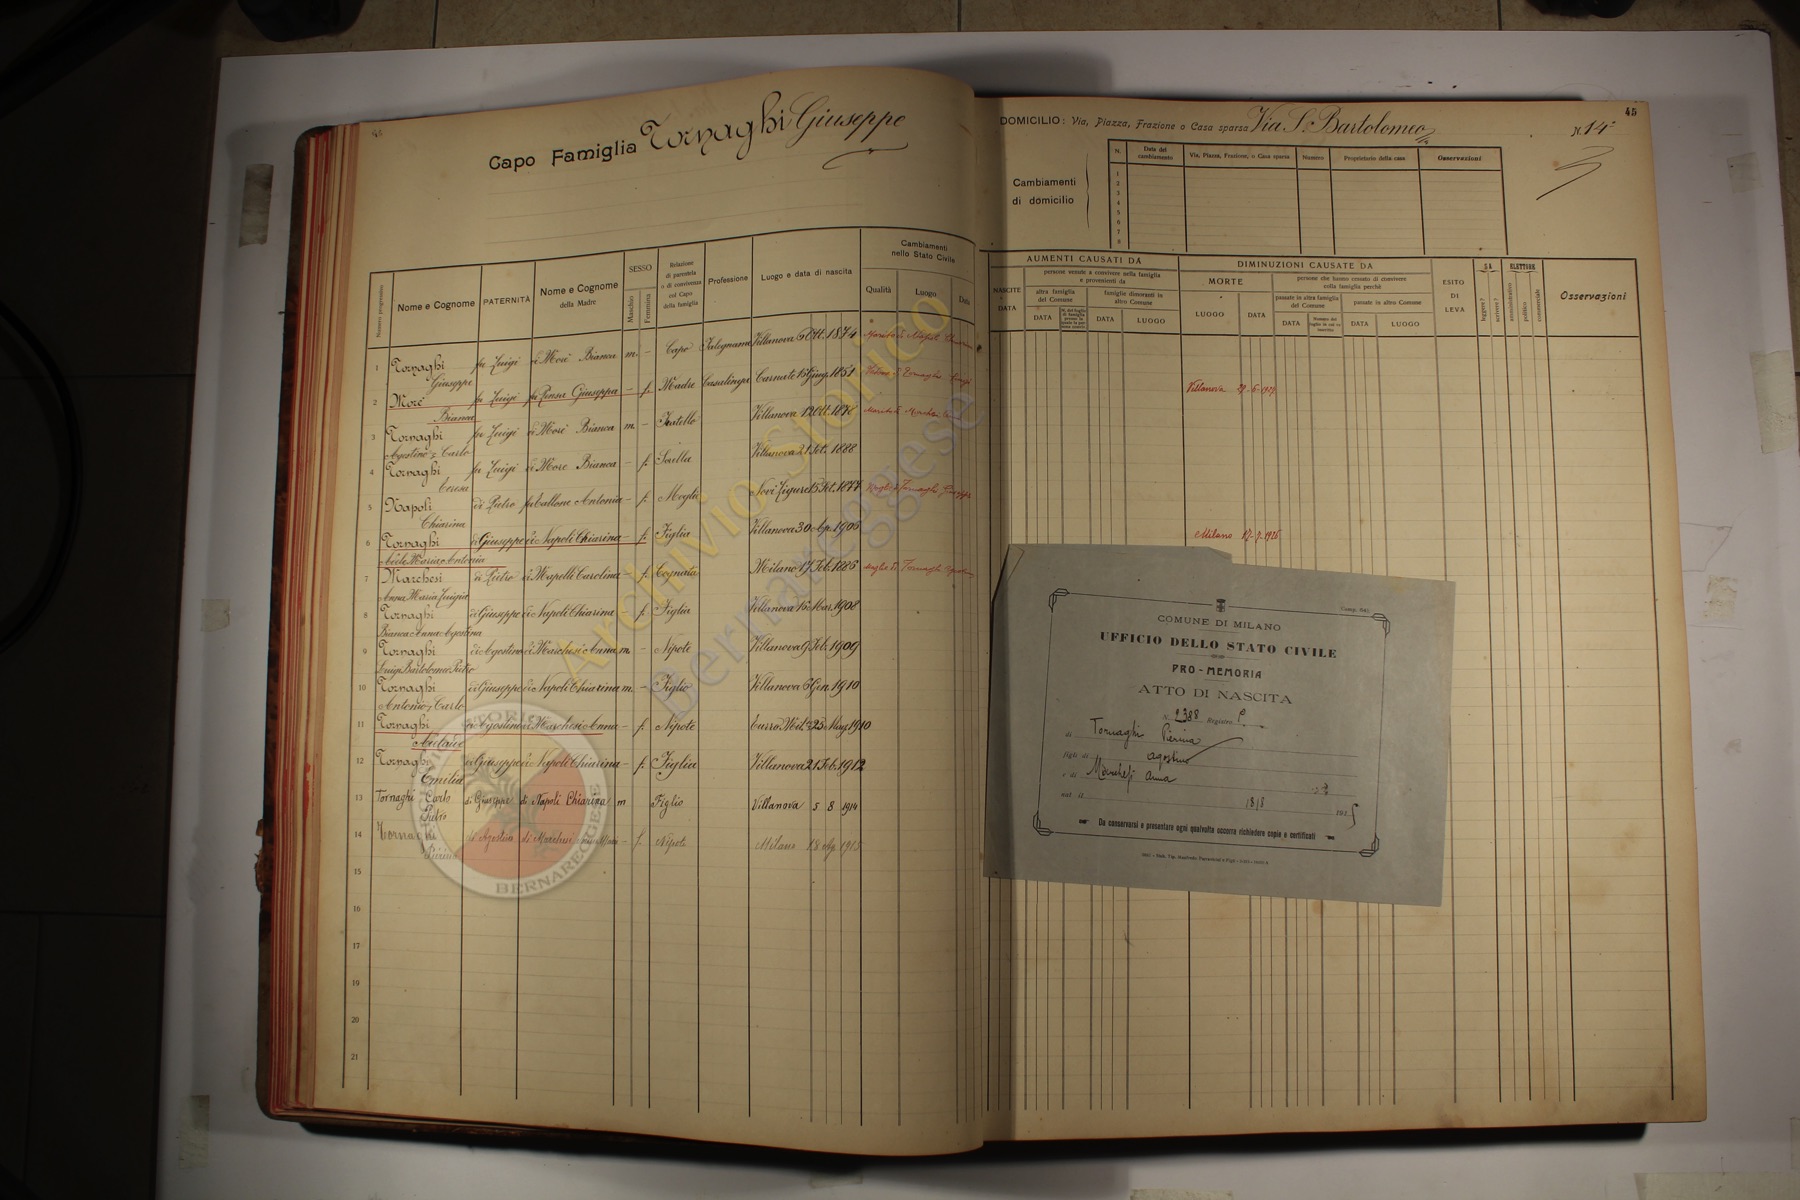 45
Capo Famiglia Tornaghi Giuseppe
Numero progressivo
Nome e Cognome
PATERNITÀ
Nome e Cognome
della Madre
SESSO
Maschio
Femmina
Relazione
di parentela
o di convivenza
col Capo
della famiglia
Professione
Luogo e data di nascita
Cambiamenti
nello Stato Civile
Qualità
Luogo
Data
1 Tornaghi fu Luigi di Morè Bianca m. - Capo Falegname Villanova 6 Ott. 1874 Marito di Napoli Chiarina
Giuseppe
2 Morè fu Luigi fu Pensa Giuseppa - f. Madre Casalinga Carnate 15 Giug. 1851 Vedova di Tornaghi Luigi
Bianca
3 Tornaghi fu Luigi di Morè Bianca m. - Fratello Villanova 12 Ott. 1878 Marito di Marchesi
Agostino Carlo
4 Tornaghi fu Luigi di Morè Bianca - f. Sorella Villanova 21 Set. 1888
Teresa
5 Napoli di Pietro fu Ballone Antonia - f. Moglie Novi Ligure 15 Set. 1877 Moglie di Tornaghi Giuseppe
Chiarina
6 Tornaghi di Giuseppe di Napoli Chiarina - f. Figlia Villanova 30 Ap. 1905
Adele Maria Antonia
7 Marchesi di Pietro di Mapelli Carolina - f. Cognata Milano 17 Feb. 1885 Moglie di Tornaghi Agostino
Anna Maria Luigia
8 Tornaghi di Giuseppe di Napoli Chiarina f. Figlia Villanova 15 Mar. 1908
Bianca Anna Agostina
9 Tornaghi di Agostino di Marchesi Anna m - Nipote Villanova 9 Feb. 1909
Luigi Bartolomeo Pietro
10 Tornaghi di Giuseppe di Napoli Chiarina m - Figlio Villanova 6 Gen. 1910
Antonio Carlo
11 Tornaghi di Agostino di Marchesi Anna - f. Nipote Turro Mil. 23 Mag. 1910
12 Tornaghi di Giuseppe di Napoli Chiarina - f. Figlia Villanova 21 Feb. 1912
Emilia
13 Tornaghi Carlo di Giuseppe di Napoli Chiarina m Figlio Villanova 5 8 1914
Pietro
14 Tornaghi di Agostino di Marchesi - f. Nipote Milano 18 Ag. 1915
Pierina
15
16
17
18
19
20
21
45
DOMICILIO: Via, Piazza, Frazione o Casa sparsa Via S. Bartolomeo N. 14
Cambiamenti
di domicilio
N.
Data del
cambiamento
Via, Piazza, Frazione, o Casa sparsa
Numero
Proprietario della casa
Osservazioni
1
2
3
4
5
6
7
8
AUMENTI CAUSATI DA
NASCITE
DATA
persone venute a convivere nella famiglia
e provenienti da
altra famiglia
del Comune
DATA
famiglie dimoranti in
altro Comune
DATA
LUOGO
DIMINUZIONI CAUSATE DA
MORTE
LUOGO
DATA
persone che hanno cessato di convivere
nella famiglia perchè
passate in altra famiglia
del Comune
DATA
passate in altro Comune
DATA
LUOGO
ESITO
DI
LEVA
SA
leggere?
scrivere?
ELETTORE
amministrativo
politico
commerciale
Osservazioni
Villanova 29-6-1929
Milano 17-7-1926
COMUNE DI MILANO
UFFICIO DELLO STATO CIVILE
PRO-MEMORIA
ATTO DI NASCITA
N. 2388 Registro
di Tornaghi Pierina
figli di Agostino
e di Marchesi Anna
nat il 18/8 1915
Da conservarsi e presentare ogni qualvolta occorra richiedere copie o certificati
Archivio Storico
Bernareggese
ARCHIVIO STORICO
BERNAREGGESE